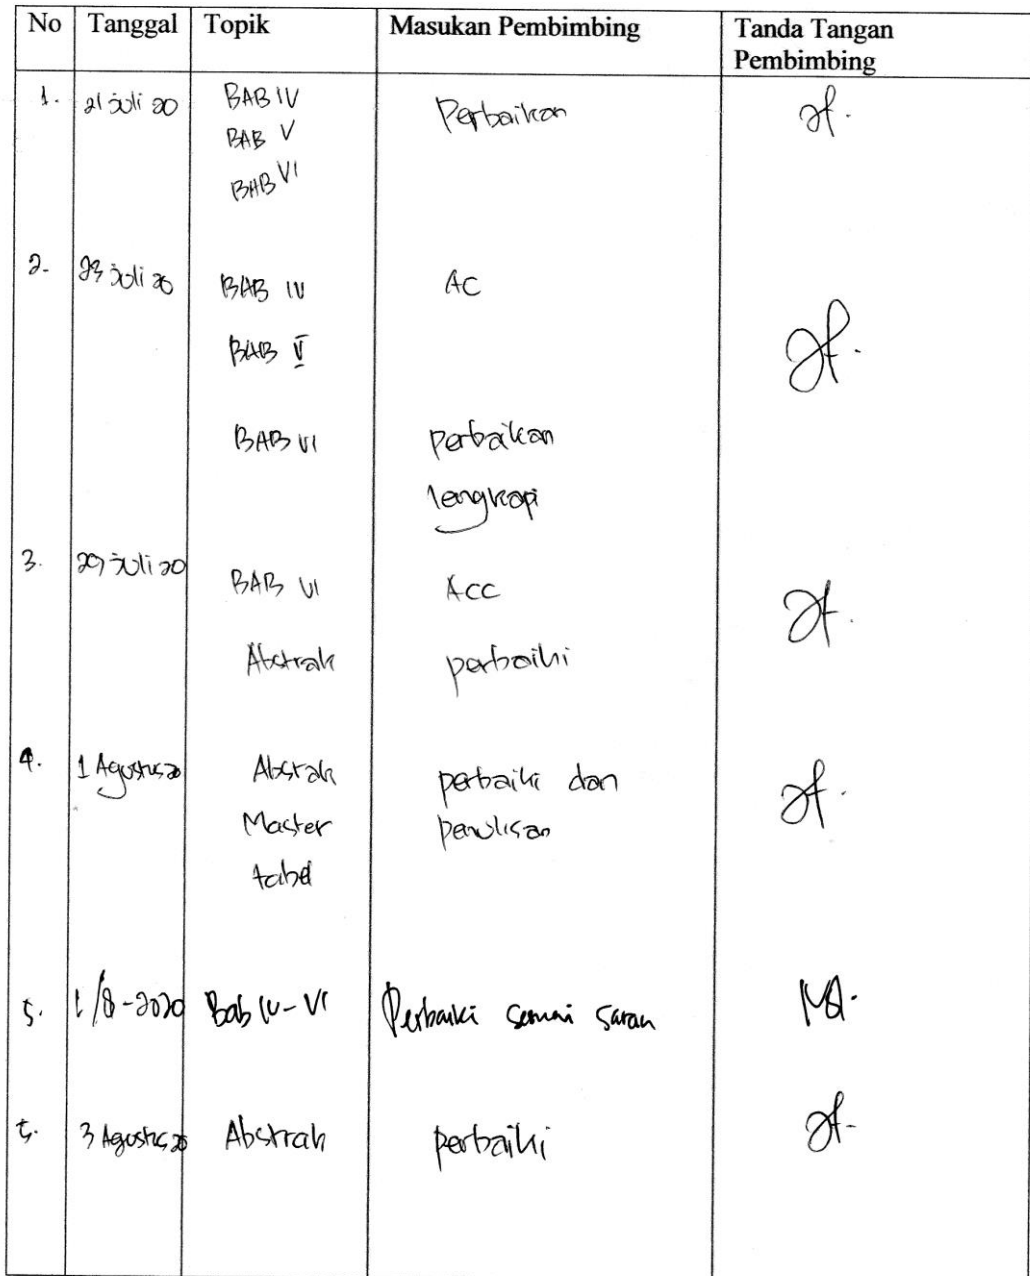 No Tanggal Topik Masukan Pembimbing Tanda Tangan Pembimbing
1. 21 juli 20 BAB IV Perbaikan
BAB V
BAB VI
2. 23 juli 20 BAB IV AC
BAB V
BAB VI perbaikan
lengkapi
3. 29 juli 20 BAB VI ACC
Abstrak perbaiki
4. 1 Agustus 20 Abstrak perbaiki dan
Master penulisan
tabel
5. 1/8-2020 Bab IV-VI Perbaiki sesuai saran
5. 3 Agustus 20 Abstrak perbaiki